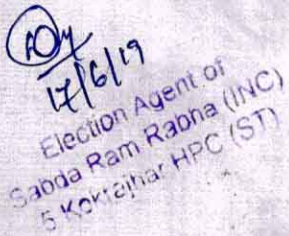 17/6/19
Election Agent of
Sabda Ram Rabha (INC)
5 Kokrajhar HPC (ST)